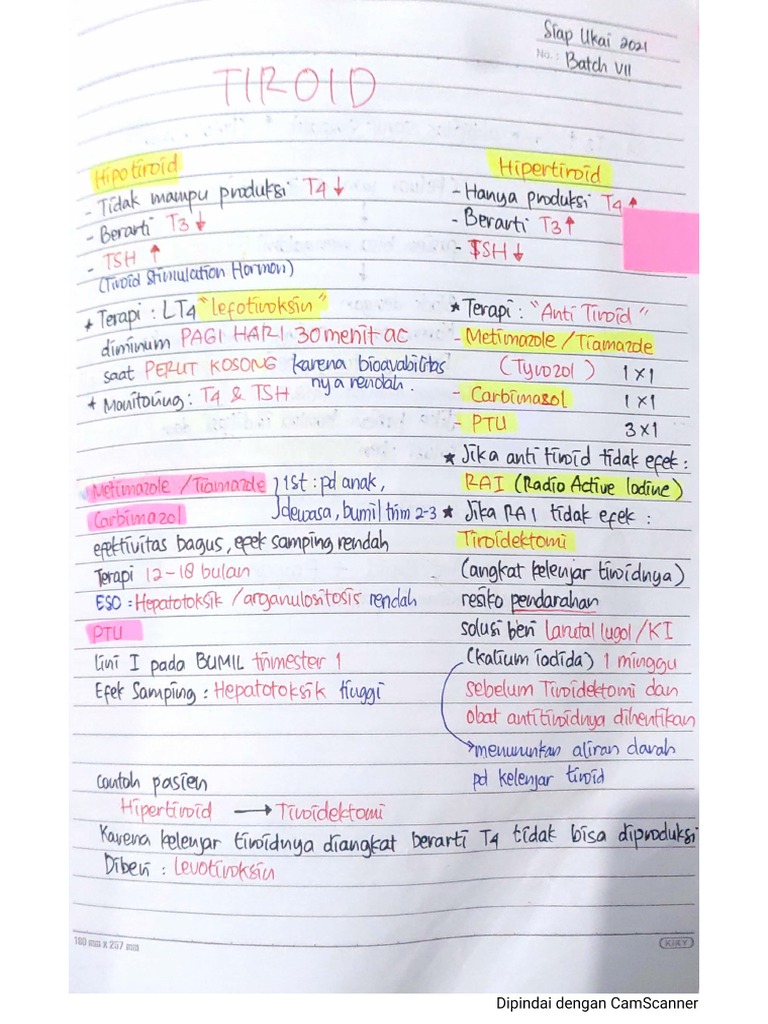 Siap Ukai 2021
No.: Batch VII
TIROID
Hipotiroid
- Tidak mampu produksi T4 ↓
- Berarti T3 ↓
- TSH ↑
(Tiroid Stimulation Hormon)
★ Terapi : LT4 "lefotiroksin"
diminum PAGI HARI 30 menit ac
saat PERUT KOSONG karena bioavabilitas
nya rendah.
★ Monitoring : T4 & TSH
Hipertiroid
- Hanya produksi T4 ↑
- Berarti T3 ↑
- TSH ↓
★ Terapi : "Anti Tiroid"
- Metimazole / Tiamazde
(Tyrozol) 1 x 1
- Carbimazol 1 x 1
- PTU 3 x 1
★ Jika anti tiroid tidak efek :
RAI (Radio Active Iodine)
★ Jika RAI tidak efek :
Tiroidektomi
(angkat kelenjar tiroidnya)
resiko pendarahan
solusi beri larutal lugol / KI
(kalium iodida) 1 minggu
sebelum Tiroidektomi dan
obat antitiroidnya dihentikan
→ menurunkan aliran darah
pd kelenjar tiroid
Metimazole / Tiamazde } 1st : pd anak,
Carbimazol dewasa, bumil trim 2-3
efektivitas bagus, efek samping rendah
Terapi 12-18 bulan
ESO : Hepatotoksik / arganulositosis rendah
PTU
lini I pada BUMIL trimester 1
Efek Samping : Hepatotoksik tinggi
Contoh pasien
Hipertiroid → Tiroidektomi
Karena kelenjar tiroidnya diangkat berarti T4 tidak bisa diproduksi
Diberi : Levotiroksin
180 mm x 257 mm
KIKY
Dipindai dengan CamScanner